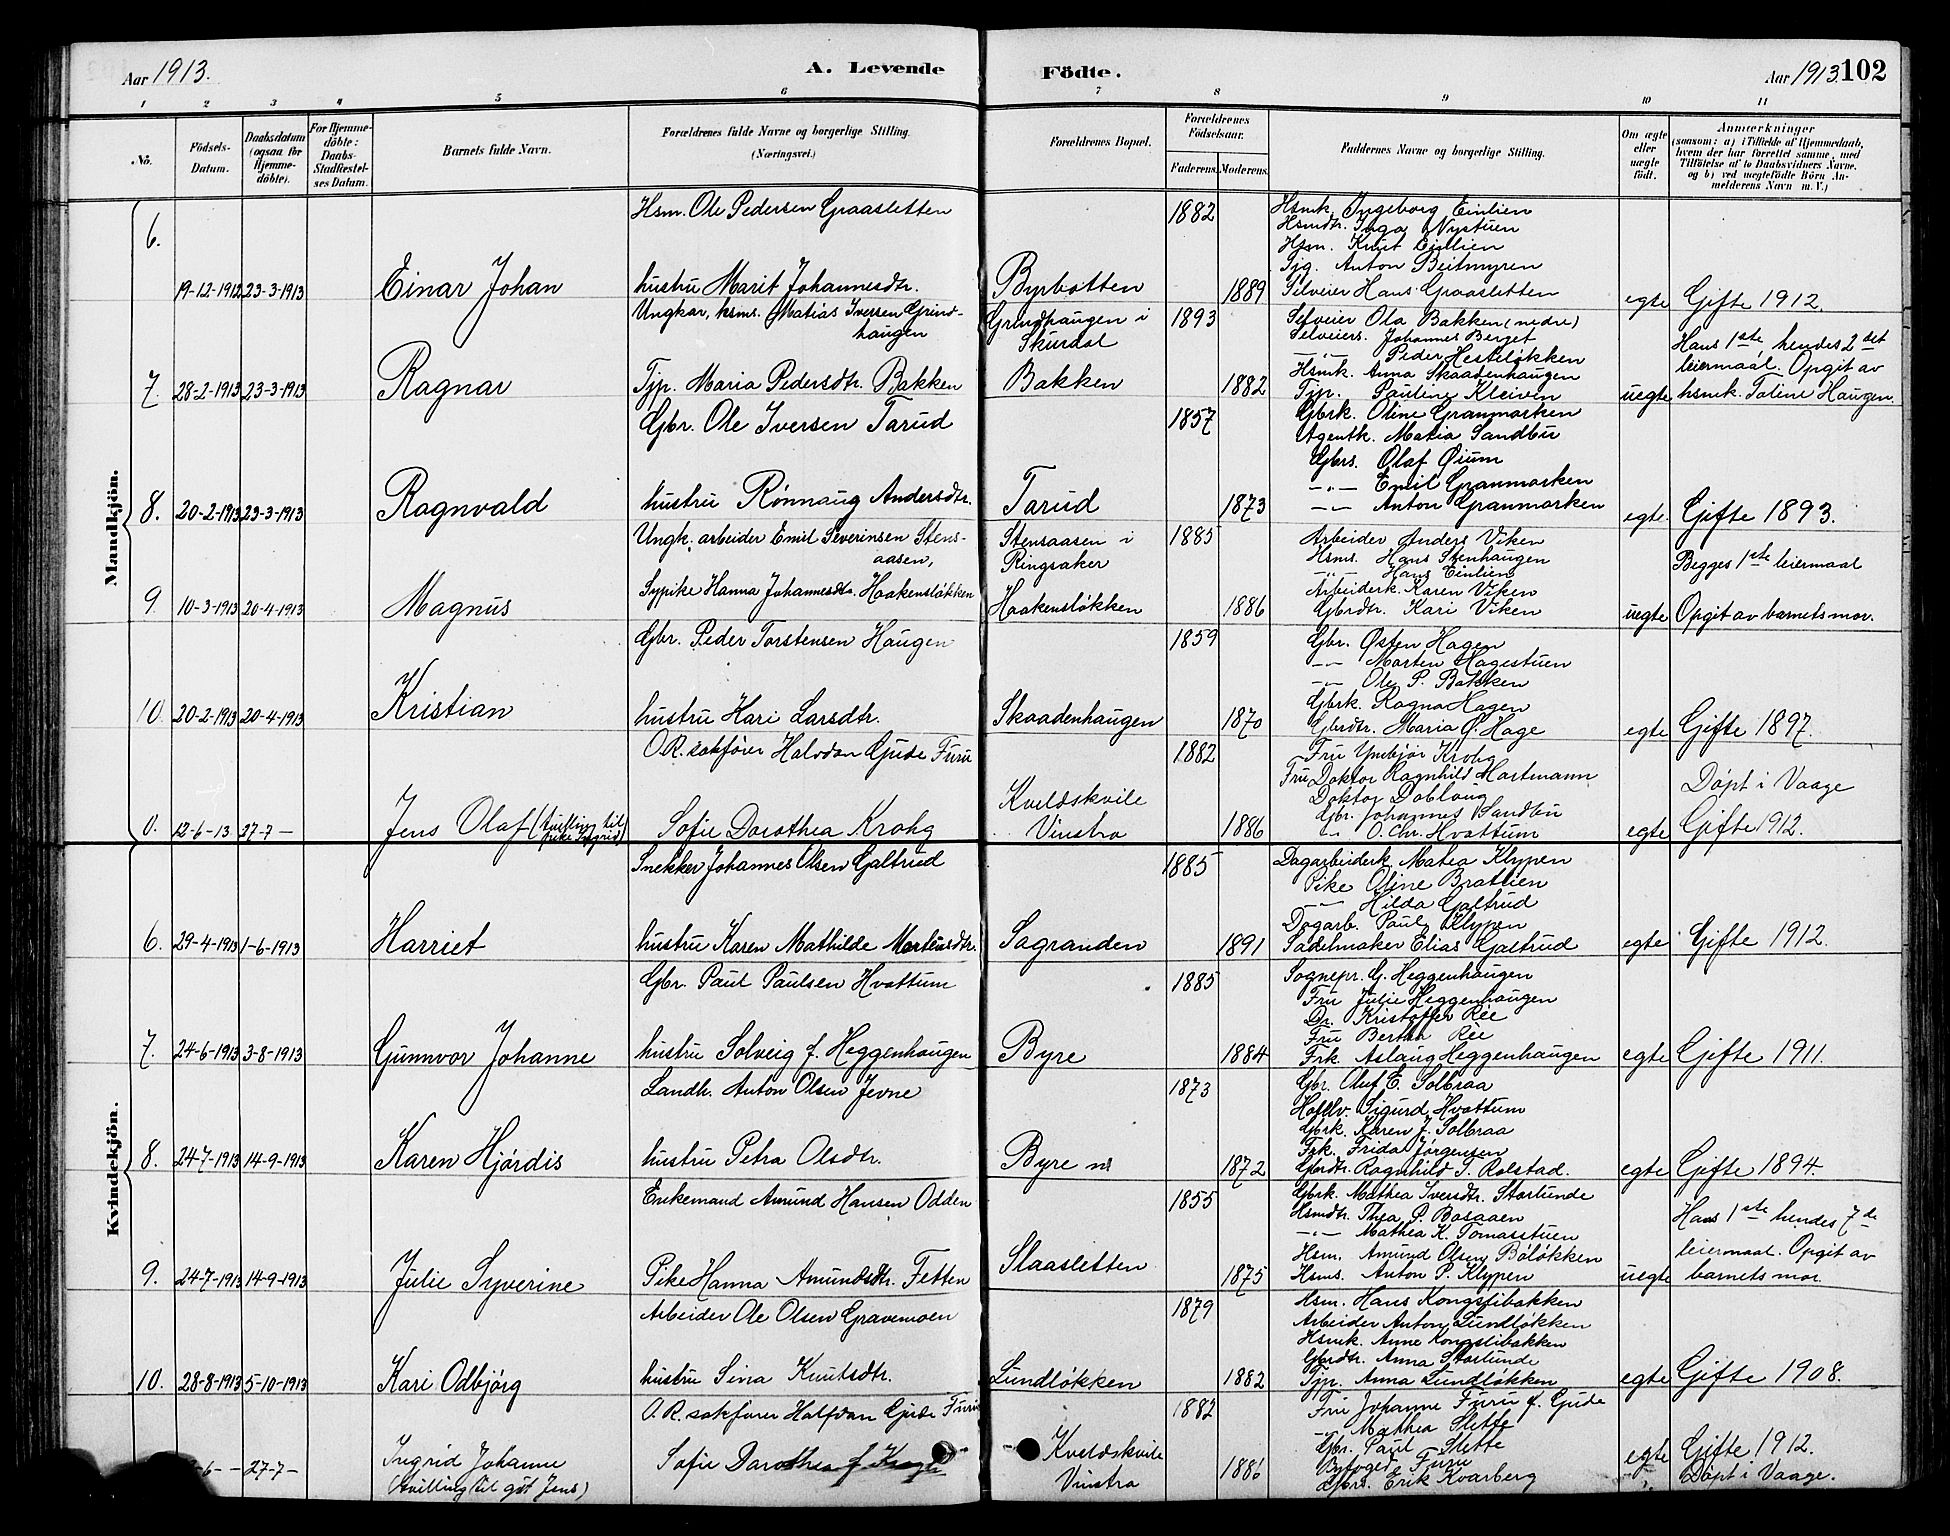 Aar 1913. A. Levende Födte. Aar 1913. 102
1 2 3 4 5 6 7 8 9 10 11
No. Födsels-Datum. Daabsdatum (ogsaa for Hjemme-döbte). For Hjemme-döbte: Daabs-Stadfæstel-ses Datum. Barnets fulde Navn. Forældrenes fulde Navne og borgerlige Stilling. (Næringsvei.) Forældrenes Bopæl. Forældrenes Födselsaar. Faderens. Moderens. Faddernes Navne og borgerlige Stilling. Om ægte eller uægte födt. Anmærkninger (saasom: a) i Tilfælde af Hjemmedaab, hvem der har forrettet samme, med Tilföielse af to Daabsvidners Navne, og b) ved uægtefödte Börn An-melderens Navn m. V.)
Mandkjön.
6. Hsm. Ole Pedersen Graasletten 1882 Hsmk. Ingeborg Einlien
Hsmdtr. Inga Nystuen
Hsm. Knut Einlien
Tjg. Anton Beitmyren
19-12-1912 23-3-1913 Einar Johan hustru Marit Johannesdtr. Byrbotten 1889 Selveier Hans Graasletten egte Gifte 1912.
Ungkar, hsms. Matias Iversen Grind-haugen Grindhaugen i Skurdal 1893 Selveier Ola Bakken (nedre)
Selveiers. Johannes Berget Hans 1ste hendes 2det
-"- Peder Hesteløkken leiermaal. Opgit av
Hsmk. Anna Skaadenhaugen
7. 28-2-1913 23-3-1913 Ragnar Tjp. Maria Pedersdtr. Bakken Bakken 1882 Tjp. Pauline Kleiven uegte hsmk. Toline Haugen.
Gbr. Ole Iversen Tarud 1857 Gbrk. Oline Granmarken
Agentk. Matia Sandbu
Gbrs. Olaf Øium
-"- Emil Granmarken
8. 20-2-1913 23-3-1913 Ragnvald hustru Rønnaug Andersdtr. Tarud 1873 -"- Anton Granmarken egte Gifte 1893.
Ungk. arbeider Emil Severinsen Stens-aasen, Stensaasen i Ringsaker 1885 Arbeider Anders Viken
Hsms. Hans Stenhaugen Begges 1ste leiermaal
-"- Hans Einlien
Arbeiderk. Karen Viken
9. 10-3-1913 20-4-1913 Magnus Sypike Hanna Johannesdtr. Haakensløkken Haakensløkken 1886 Gbrdtr. Kari Viken uegte Opgit av barnets mor.
Gbr. Peder Torstensen Haugen 1859 Gbr. Østen Hagen
-"- Morten Hagestuen
-"- Ole P. Bakken
Gbrk. Ragna Hagen
10. 20-2-1913 20-4-1913 Kristian hustru Kari Larsdtr. Skaadenhaugen 1870 Gbrdtr. Maria Ø. Hage egte Gifte 1897.
O.R. sakfører Halvdan Gjude Furu 1882 Fru Ymbjør Krohg
Fru Doktor Ragnhild Hartmann
Doktor Dobloug Døpt i Vaage
Gbr. Johannes Sandbu
0. 12-6-13 27-7- Jens Olaf (tvilling til pike Ingrid) Sofie Dorothea Krohg Kveldskvile Vinstra 1886 -"- O. Chr. Hvattum egte Gifte 1912.
Kvindekjön.
Snekker Johannes Olsen Galtrud 1885 Dagarbeiderk. Matea Klypen
Pike Oline Brattlien
-"- Hilda Galtrud
Dagarb. Paul Klypen
6. 29-4-1913 1-6-1913 Harriet hustru Karen Mathilde Mortensdtr. Sagranden 1891 Sadelmaker Elias Galtrud egte Gifte 1912.
Gbr. Paul Paulsen Hvattum 1885 Sognepr. G. Heggenhaugen
Fru Julie Heggenhaugen
Dr. Kristoffer Rée
Fru Bertha Rée
7. 24-6-1913 3-8-1913 Gunnvor Johanne hustru Solveig f. Heggenhaugen Byre 1884 Frk. Aslaug Heggenhaugen egte Gifte 1911.
Landh. Anton Olsen Jevne 1873 Gbr. Oluf E. Solbraa
Sigurd Hvattum
Gbrk. Karen J. Solbraa
Frk. Frida Jørgensen
8. 24-7-1913 14-9-1913 Karen Hjørdis hustru Petra Olsdtr. Byre n 1872 Gbrdtr. Ragnhild I. Rolstad. egte Gifte 1894.
Enkemand Amund Hansen Odden 1855 Gbrk. Mathea Iversdtr. Storlunde
Hsmdtr. Thea P. Bosaaen Hans 1ste hendes 7de
-"- Mathea K. Tomasstuen
Hsm. Amund Olsen Bøløkken leiermaal. Opgit av
9. 24-7-1913 14-9-1913 Julie Syverine Pike Hanna Amundsdtr. Fetten Slaasletten 1875 Hsms. Anton P. Klypen uegte barnets mor.
Arbeider Ole Olsen Gravemoen 1879 Hsm. Hans Kongslibakken
Arbeider Anton Lundløkken
Hsmk. Anne Kongslibakken
Gbrdtr. Anna Storlunde
10. 28-8-1913 5-10-1913 Kari Odbjørg hustru Sina Knutsdtr. Lundløkken 1882 Tjp. Anna Lundløkken egte Gifte 1908.
O.R. sakfører Halfdan Gjude Furu 1882 Fru Johanne Furu f. Gjude
-"- Mathea Slette
Gbr. Paul Slette
-6-- 27-7- Ingrid Johanne (tvilling til gut Jens) Sofie Dorothea f. Krogh Kveldskvile Vinstra 1886 Byfoged Furu egte Gifte 1912.
Gbrs. Erik Kvarberg Døpt i Vaage.